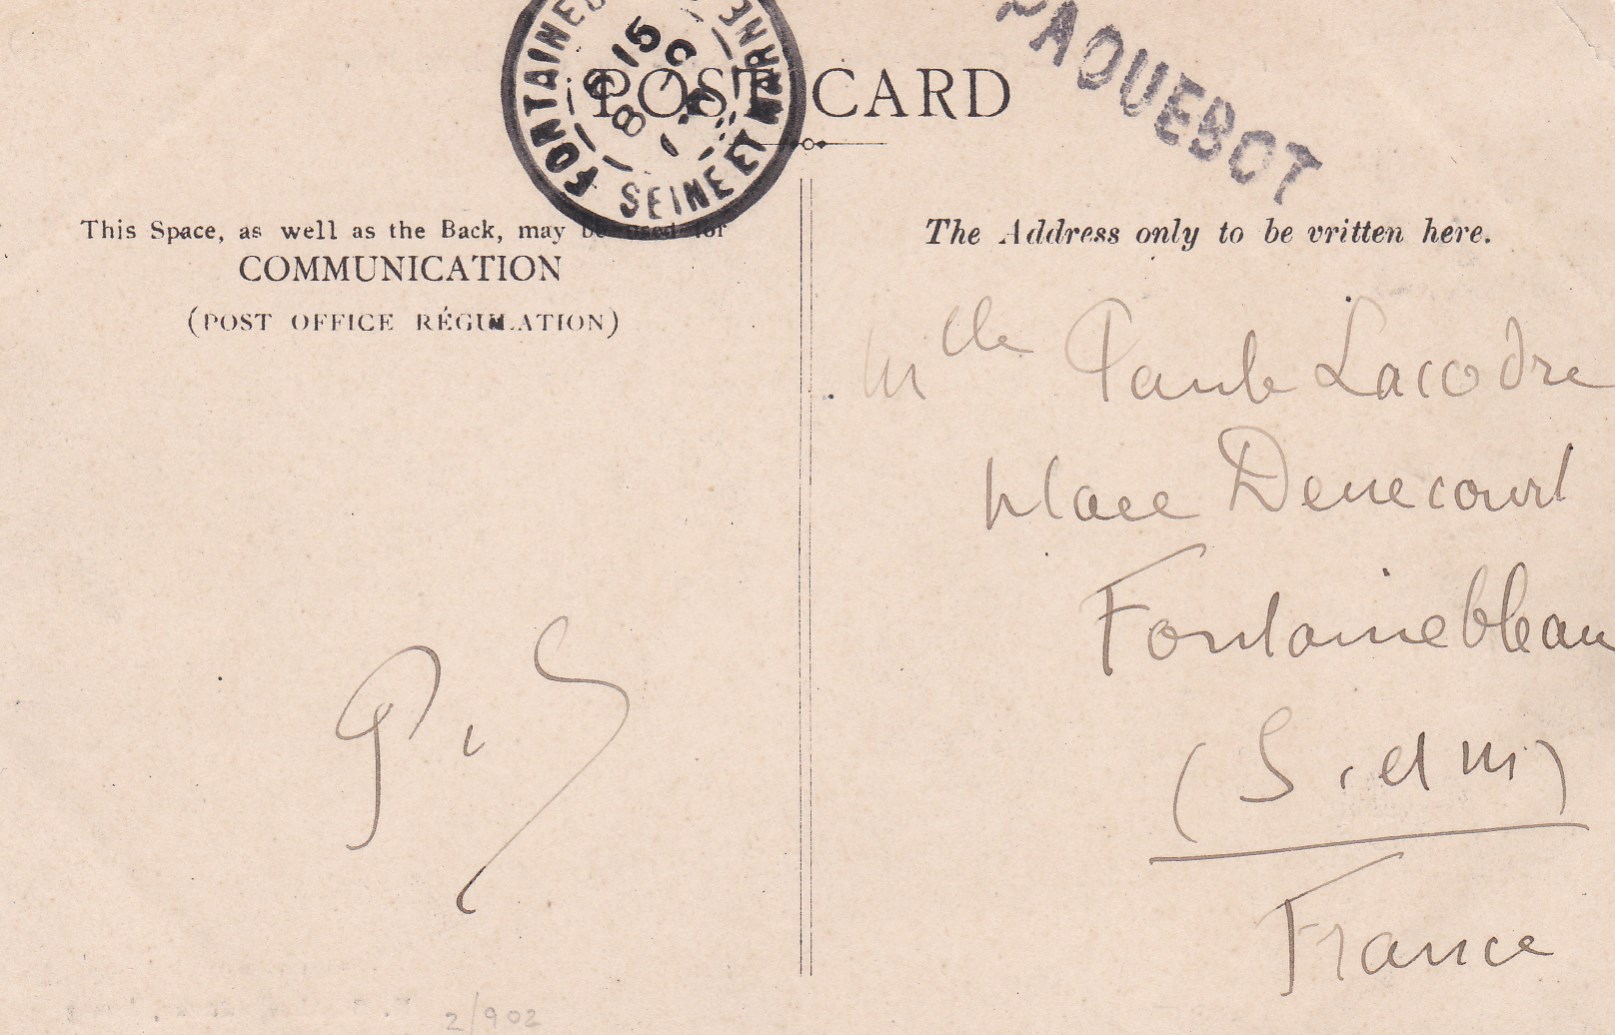 POST CARD
FONTAINEB
SEINE ET MARNE
8 15
PAQUEBOT
This Space, as well as the Back, may be used for
COMMUNICATION
(POST OFFICE RÉGULATION)
The Address only to be written here.
Mlle Paule Lacodre
place Denecourt
Fontainebleau
(S. et M)
France
P. S
2/902